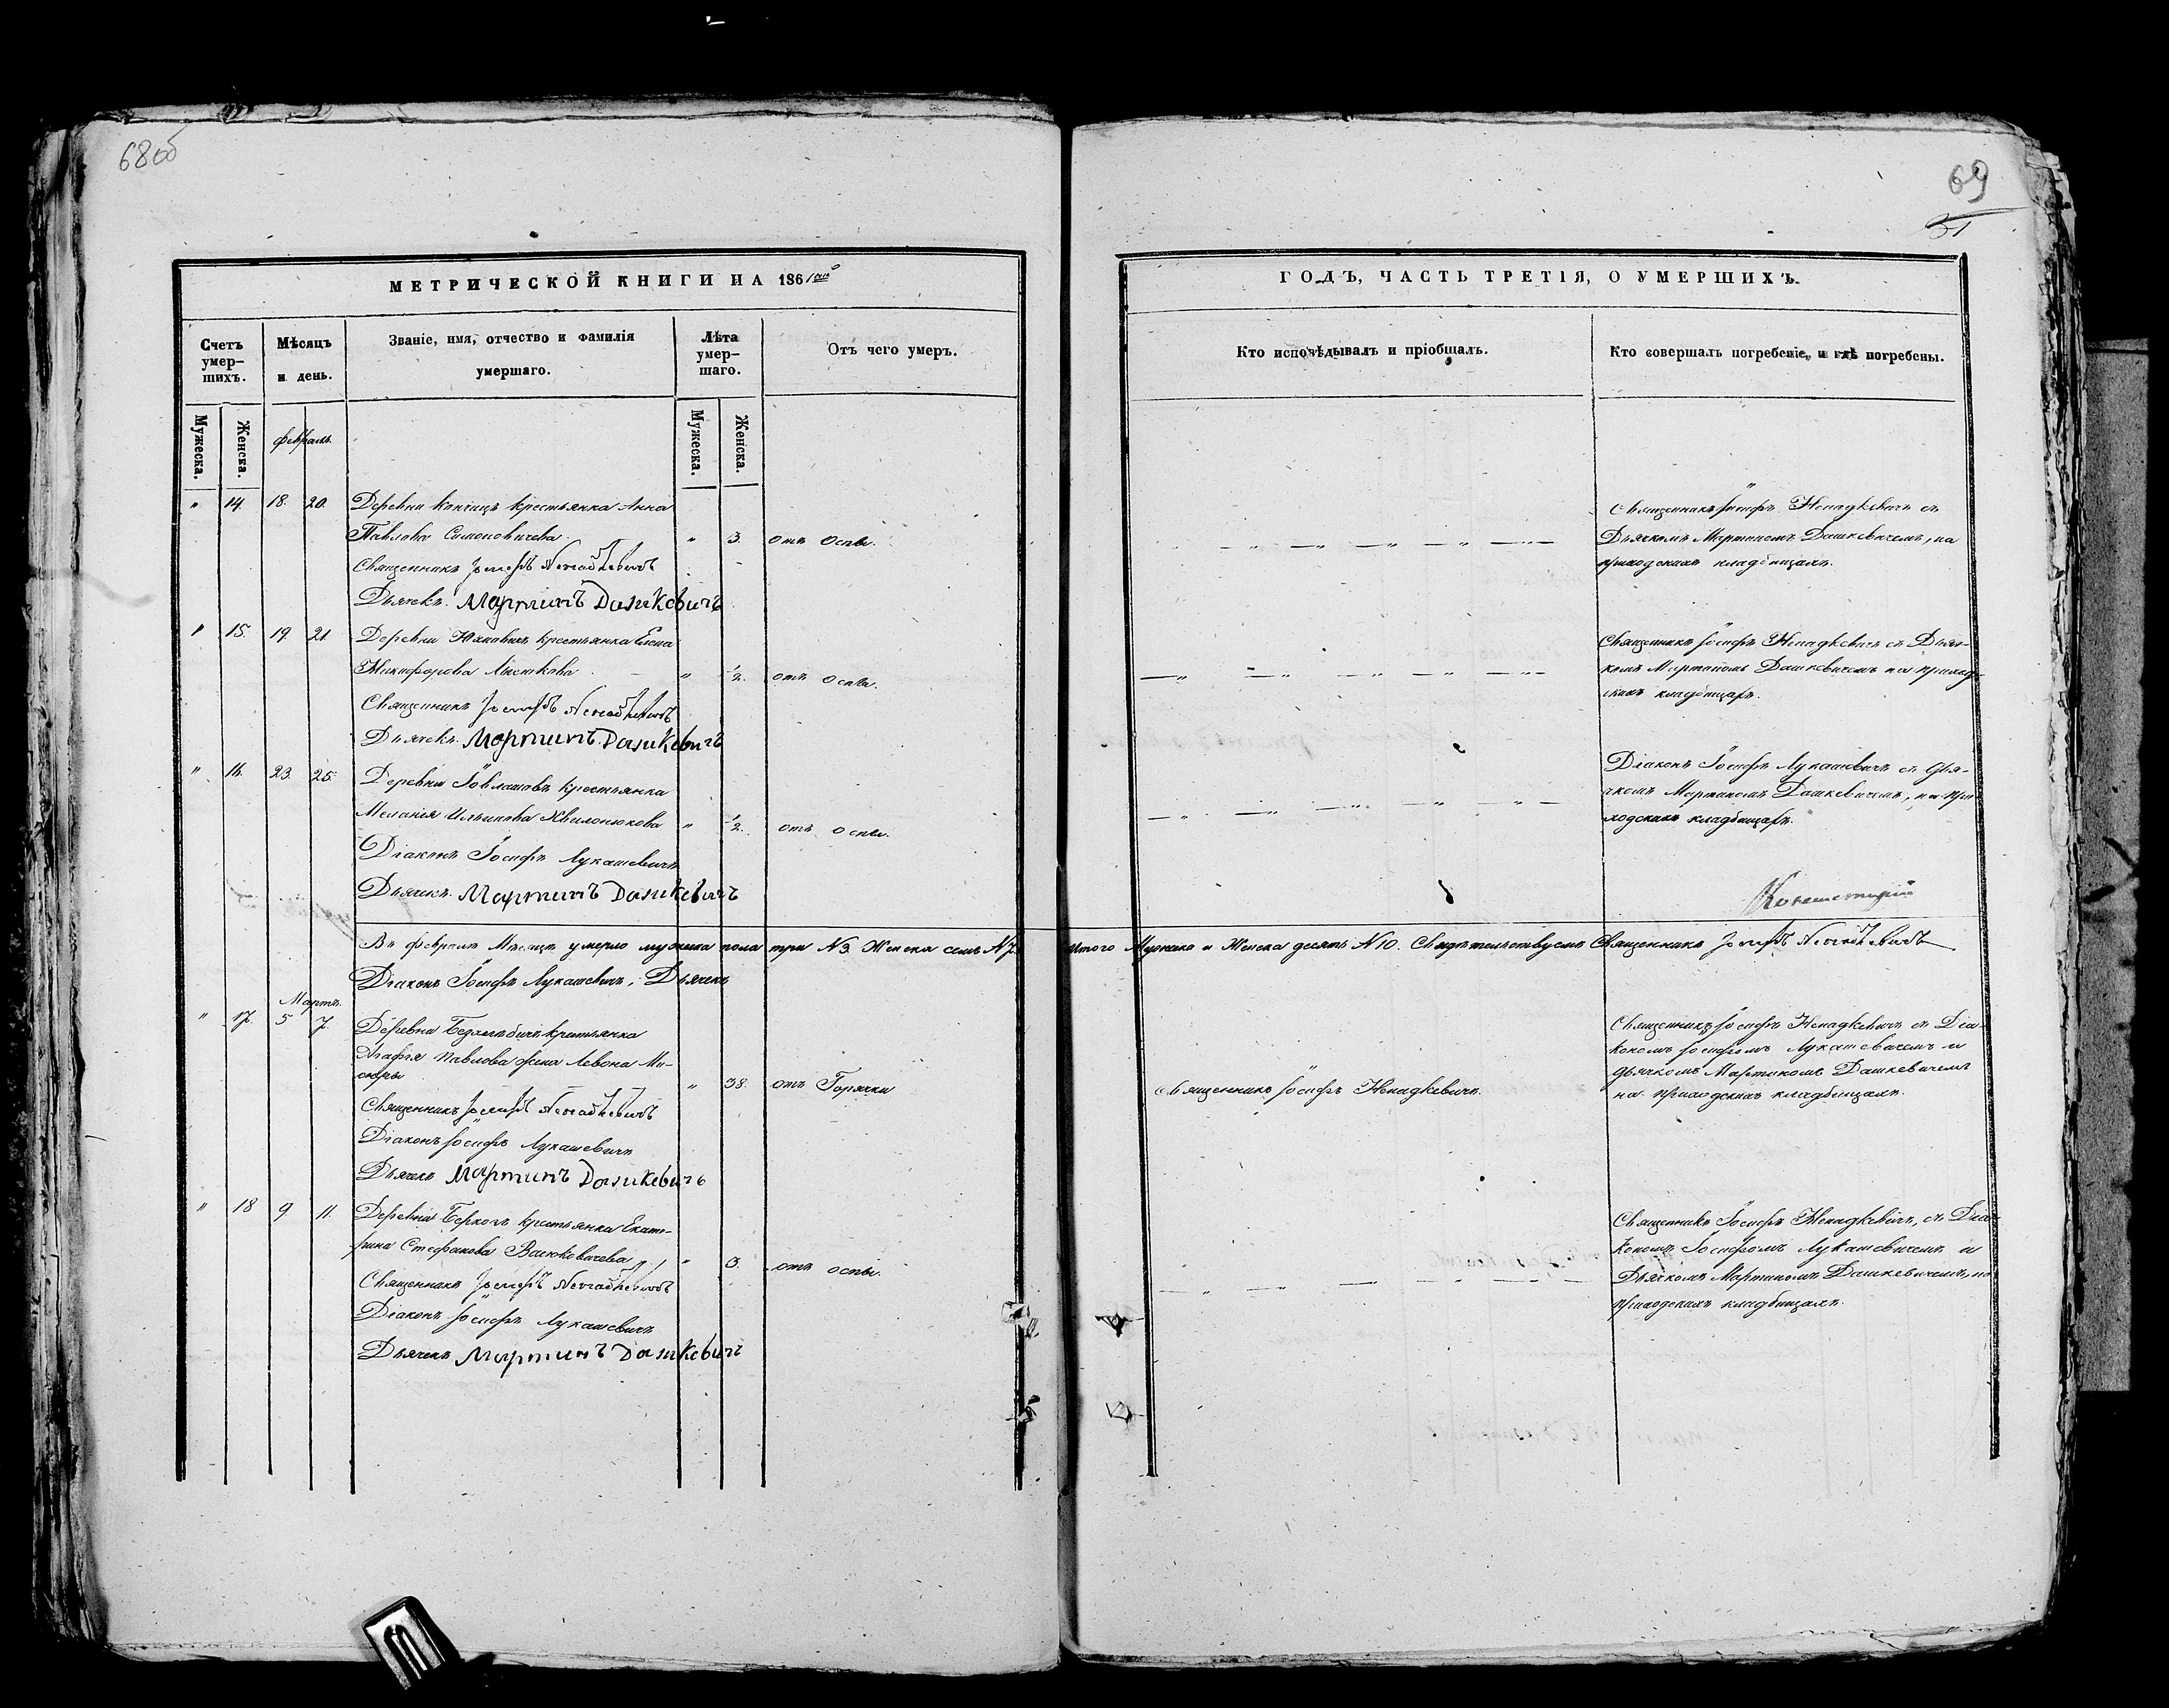 68об
69
31
МЕТРИЧЕСКОЙ КНИГИ НА 1861
ГОДЪ, ЧАСТЬ ТРЕТІЯ, О УМЕРШИХЪ.
Счетъ умер-
шихъ.
Мѣсяцъ
и день.
Званіе, имя, отчество и фамилія
умершаго.
Лѣта
умер-
шаго.
Отъ чего умеръ.
Кто исповѣдывалъ и пріобщалъ.
Кто совершалъ погребеніе, и гдѣ погребены.
Мужеска.
Женска.
Февраль
Мужеска.
Женска.
" 14. 18. 20. Деревни крестьянка Анна
Павлова Симоновичева. " 3. отъ Оспы.
Священникъ Іосифъ Ненадкевичъ
Дьячекъ Мартинъ Дашкевичъ
Священникъ Іосифъ Ненадкевичъ съ
Дьячкомъ Мартиномъ Дашкевичемъ, на
приходскихъ кладбищахъ.
" 15. 19. 21. Деревни Юхновичъ крестьянка Елена
Никифорова " ½. отъ оспы.
Священникъ Іосифъ Ненадкевичъ
Дьячекъ Мартинъ Дашкевичъ
Священникъ Іосифъ Ненадкевичъ съ Дьяч-
комъ Мартиномъ Дашкевичемъ на приход-
скихъ кладбищахъ.
" 16. 23. 25. Деревни крестьянка
Меланія Ильинова " ½. отъ оспы.
Діаконъ Іосифъ Лукашевичъ
Дьячекъ Мартинъ Дашкевичъ
Діаконъ Іосифъ Лукашевичъ съ Дья-
чкомъ Мартиномъ Дашкевичемъ, на при-
ходскихъ кладбищахъ.
Въ Февралѣ Мѣсяцѣ умерло мужеска пола три №3. Женска семь №7. Итого Мужеска и Женска десять №10. Свидѣтельствуемъ Священникъ Іосифъ Ненадкевичъ
Діаконъ Іосифъ Лукашевичъ, Дьячекъ
Мартъ.
" 17. 5 7. Деревни крестьянка
Агафія Павлова жена Левона Ми-
сюры " 38. отъ Горячки
Священникъ Іосифъ Ненадкевичъ
Діаконъ Іосифъ Лукашевичъ
Дьячекъ Мартинъ Дашкевичъ
Священникъ Іосифъ Ненадкевичъ.
Священникъ Іосифъ Ненадкевичъ съ Діа-
кономъ Іосифомъ Лукашевичемъ и
дьячкомъ Мартиномъ Дашкевичемъ
на приходскихъ кладбищахъ.
" 18 9 11. Деревни крестьянка Екате-
рина Стефанова Васюковичева " 3. отъ оспы.
Священникъ Іосифъ Ненадкевичъ
Діаконъ Іосифъ Лукашевичъ
Дьячекъ Мартинъ Дашкевичъ
Священникъ Іосифъ Ненадкевичъ, съ Діа-
кономъ Іосифомъ Лукашевичемъ и
Дьячкомъ Мартиномъ Дашкевичемъ, на
приходскихъ кладбищахъ.